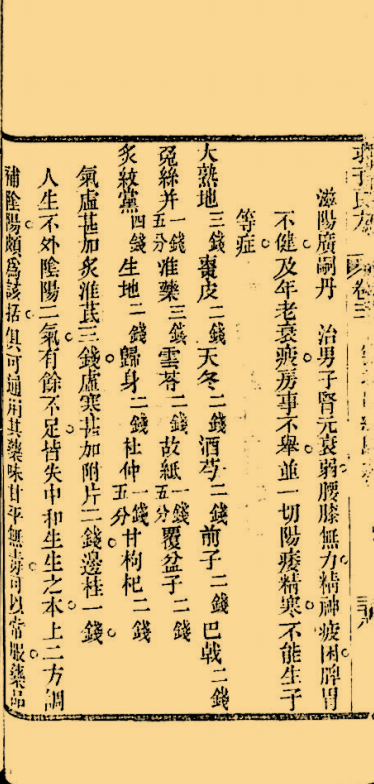 滋陽廣嗣丹　治男子腎元衰弱腰膝無力精神疲困脾胃
不健及年老衰疲房事不舉並一切陽痿精寒不能生子
等症
大熟地三錢棗皮二錢天冬二錢酒芍二錢前子二錢巴戟二錢
兔絲并一錢五分准藥三錢雲苓二錢故紙一錢五分覆盆子二錢
炙紋黨四錢生地二錢歸身二錢杜仲一錢五分甘枸杞二錢
氣虛甚加炙淮芪三錢虛寒甚加附片二錢邊桂一錢
人生不外陰陽二氣有餘不足皆失中和生生之本上二方調
補陰陽頗爲該括俱可通用其藥味甘平無毒可以常服藥品